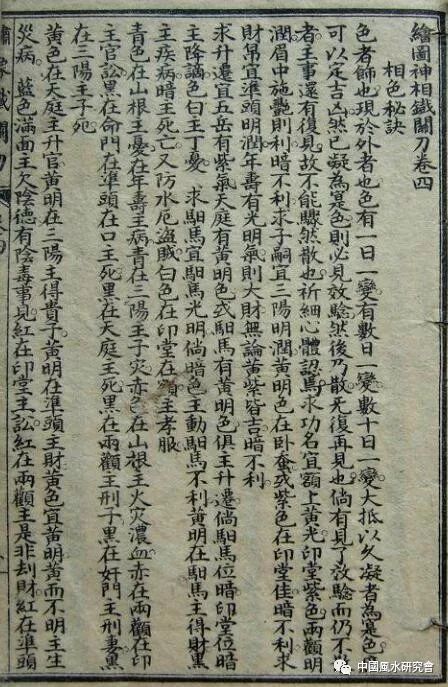 繪圖神相鐵關刀卷四
相色秘訣
色者飾也現於外者也色有一日一變有數日一變數十日一變大抵以久凝者為寔色
可以定吉凶然已凝為寔色則必見效驗然後乃散旡復再見也倘有見了效驗而仍不
者主事還有復見故不能驟然散也祈細心體認焉求功名宜額上黃光印堂紫色兩顴明
潤眉中施艷則利暗不利求子嗣宜三陽明潤黃明色在卧蚕或紫色在印堂佳暗不利求
財帛宜準頭明潤年壽有光明氣則大財無論黃紫皆吉暗不利
求升遷宜五岳有紫氣天庭有黃明色或馹馬有黃明色俱主升遷倘馹馬位暗印堂位暗
主降謫色白主丁憂 求馹馬宜馹馬光明倘暗色主動馹馬不利黃明在馹馬主得財黑
主疾病暗主死亡又防水厄盜賊白色在印堂在額主孝服
青色在山根主憂在年壽主病青在三陽主子灾赤色在山根主火灾濃血赤在兩顴在印
主官訟黑在命門在準頭在口主死黑在天庭主死黑在兩顴主刑子黑在奸門主刑妻黑
在三陽主子死
黃色在天庭主升官黃明在三陽主得貴子黃明在準頭主財黃色宜黃明黃而不明主生
災病 藍色滿面主欠陰德有陰毒事見紅在印堂主訟紅在兩顴主是非刦財紅在準頭
中國風水研究會